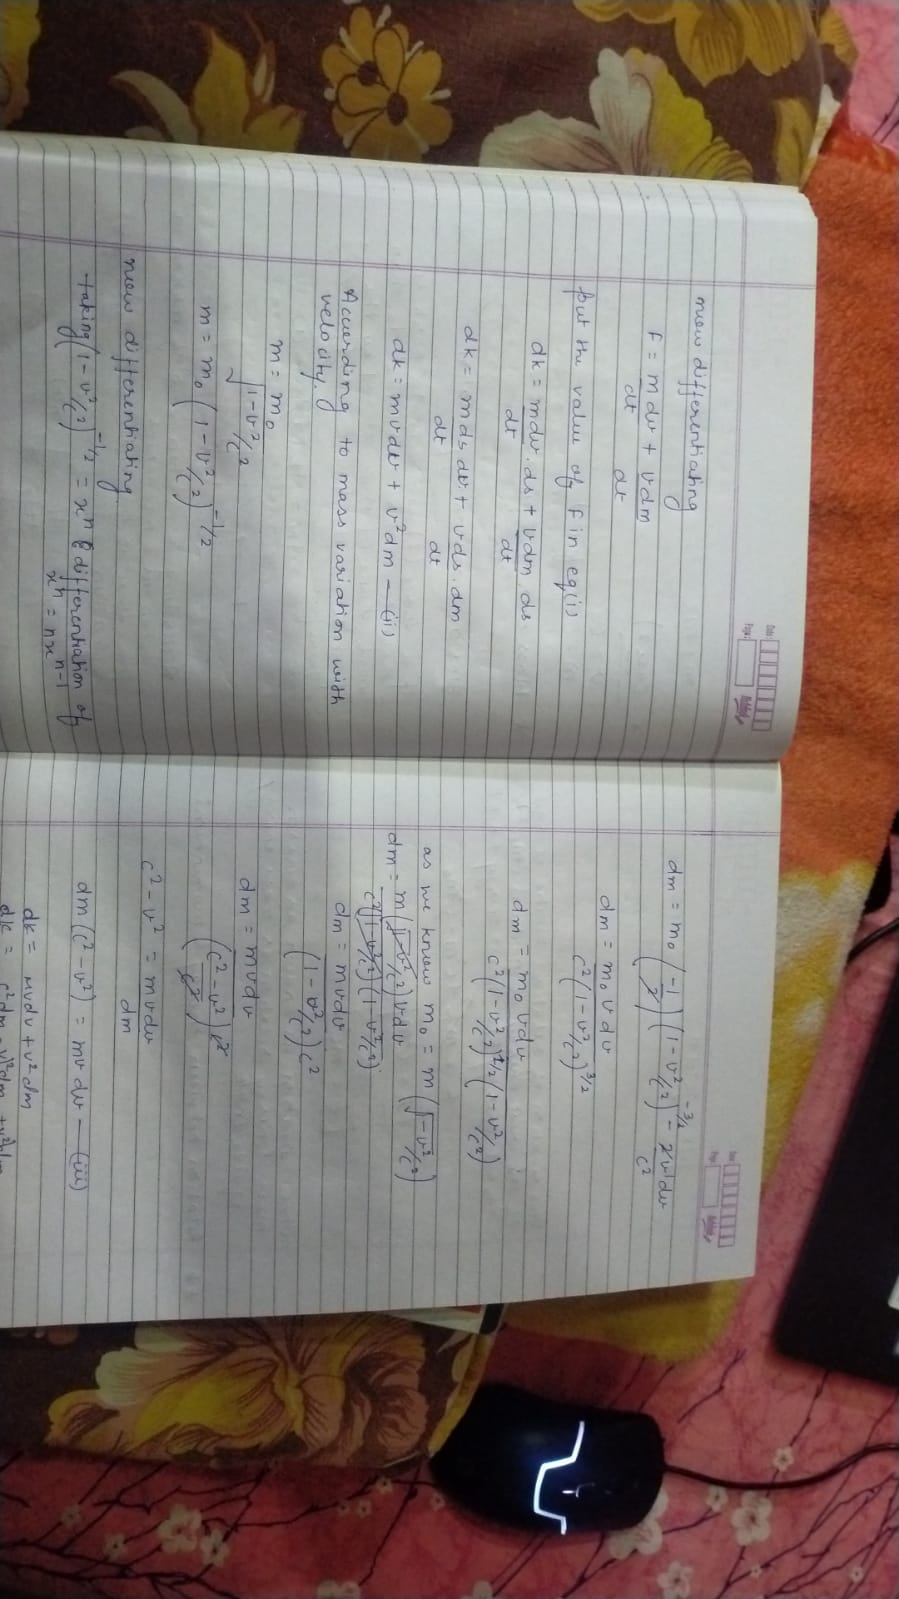 Date:
Page:
now differentiating
f = m dv/dt + v dm/dt
put the value of f in eq(i)
dk = m dv/dt . ds + v dm/dt . ds
dk = m ds/dt dv + v ds/dt . dm
dk = mvdv + v²dm — (ii)
According to mass variation with
velocity.
m = m₀/√1-v²/c²
m = m₀ (1 - v²/c²)^-1/2
now differentiating
taking (1 - v²/c²)^-1/2 = xⁿ { differentiation of
xⁿ = nx^n-1
Date:
Page:
dm = m₀ (-1/2) (1 - v²/c²)^-3/2 - 2v/c² dv
dm = m₀ v dv/c² (1 - v²/c²)^3/2
dm = m₀ v dv/c² (1 - v²/c²)^1/2 (1 - v²/c²)
as we know m₀ = m (√1-v²/c²)
dm = m (√1-v²/c²) v dv/c² (√1-v²/c²) (1 - v²/c²)
dm = mvdv/(1 - v²/c²) c²
dm = mvdv/(c² - v²/c²) c²
c² - v² = mvdv/dm
dm (c² - v²) = mv dv — (iii)
dk = mvdv + v²dm
dk = c²dm - v²dm + v²dm